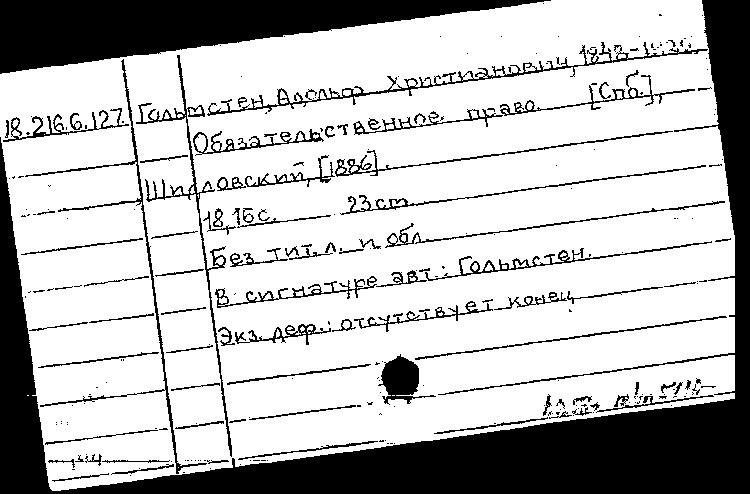 18.216.6.127 Гольмстен, Адольф Христианович, 1848-
Обязательственное право. [Спб.],
Шидловский, [1886].
18, 16 с. 23 cm.
Без тит. л. и обл.
В сигнатуре авт.: Гольмстен.
Экз. деф.: отсутствует конец